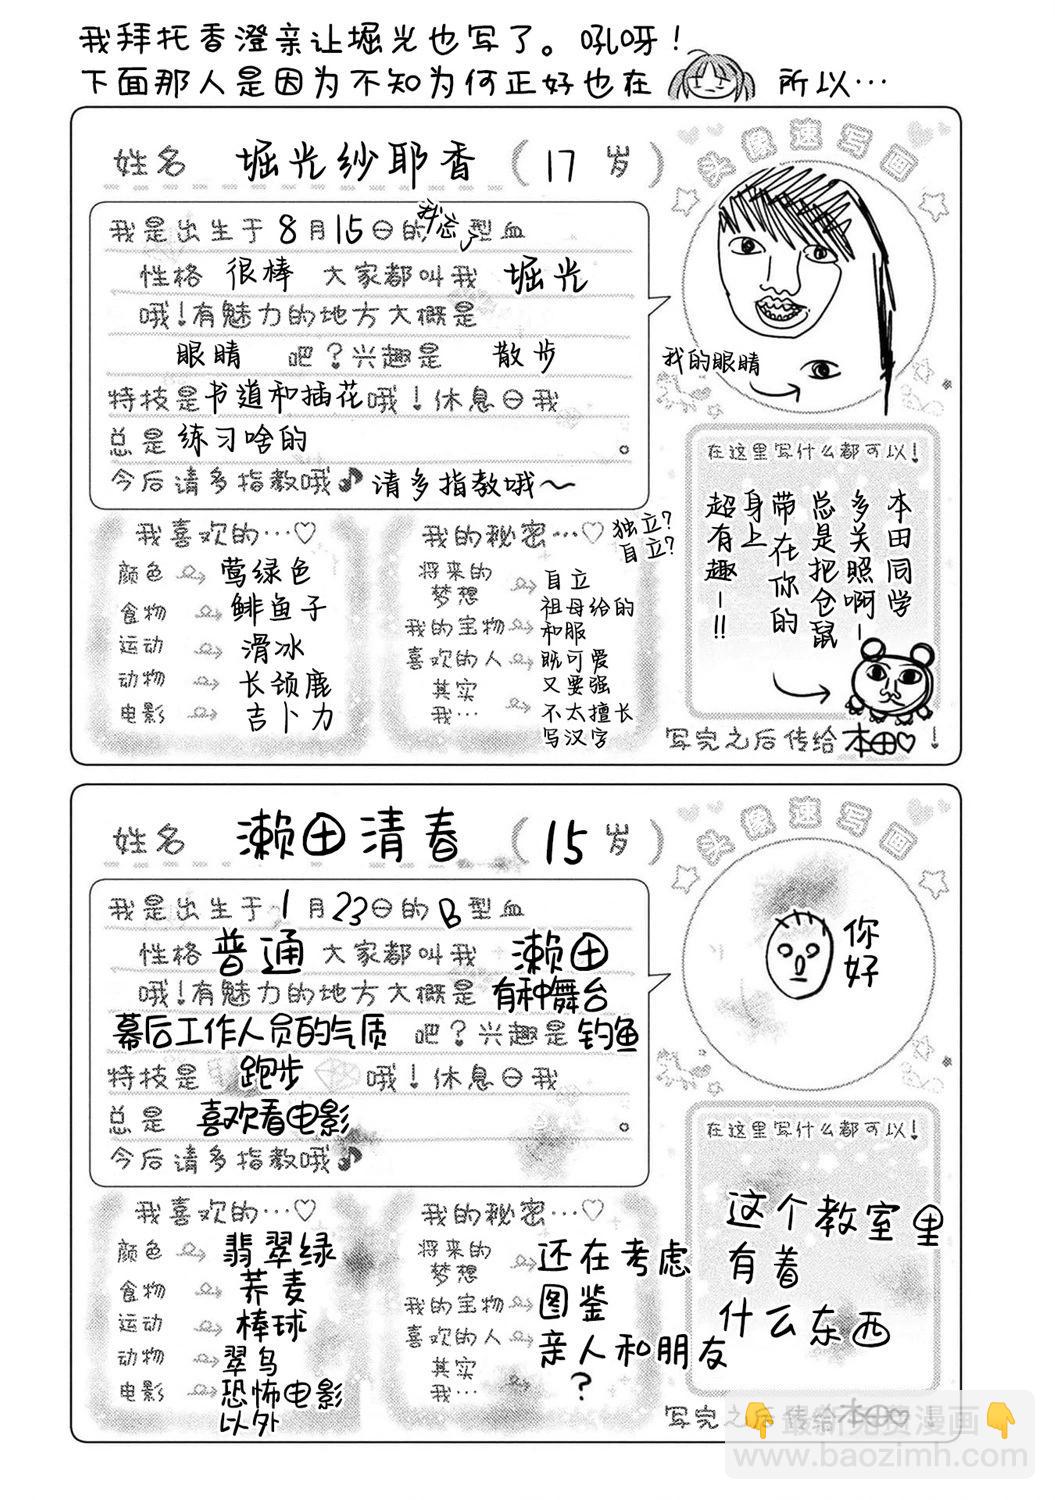 我拜托香澄亲让堀光也写了。吼呀！
下面那人是因为不知为何正好也在 所以…
姓名 堀光纱耶香（17岁）
头像速写画
我是出生于8月15日的我忘了型血
性格 很棒 大家都叫我 堀光
哦！有魅力的地方大概是
眼睛 吧？兴趣是 散步
特技是书道和插花哦！休息日我
总是练习啥的。
今后请多指教哦♪请多指教哦～
我的眼睛
在这里写什么都可以！
本田同学
多关照啊－
总是把仓鼠
带在你的
身上
超有趣－!!
写完之后传给本田♡！
我喜欢的…♡
颜色 莺绿色
食物 鲱鱼子
运动 滑冰
动物 长颈鹿
电影 吉卜力
我的秘密…♡
独立？
自立？
将来的梦想 自立
我的宝物 祖母给的
和服
喜欢的人 既可爱
又要强
其实我… 不太擅长
写汉字
姓名 濑田清春（15岁）
头像速写画
我是出生于1月23日的B型血
性格 普通 大家都叫我 濑田
哦！有魅力的地方大概是 有种舞台
幕后工作人员的气质 吧？兴趣是钓鱼
特技是 跑步 哦！休息日我
总是 喜欢看电影。
今后请多指教哦♪
你好
在这里写什么都可以！
这个教室里
有着
什么东西
我喜欢的…♡
颜色 翡翠绿
食物 荞麦
运动 棒球
动物 翠鸟
电影 恐怖电影
以外
我的秘密…♡
将来的梦想 还在考虑
我的宝物 图鉴
喜欢的人 亲人和朋友
其实我… ？
写完之后传给本田♡
👇最新免费漫画👇
www.baozimh.com